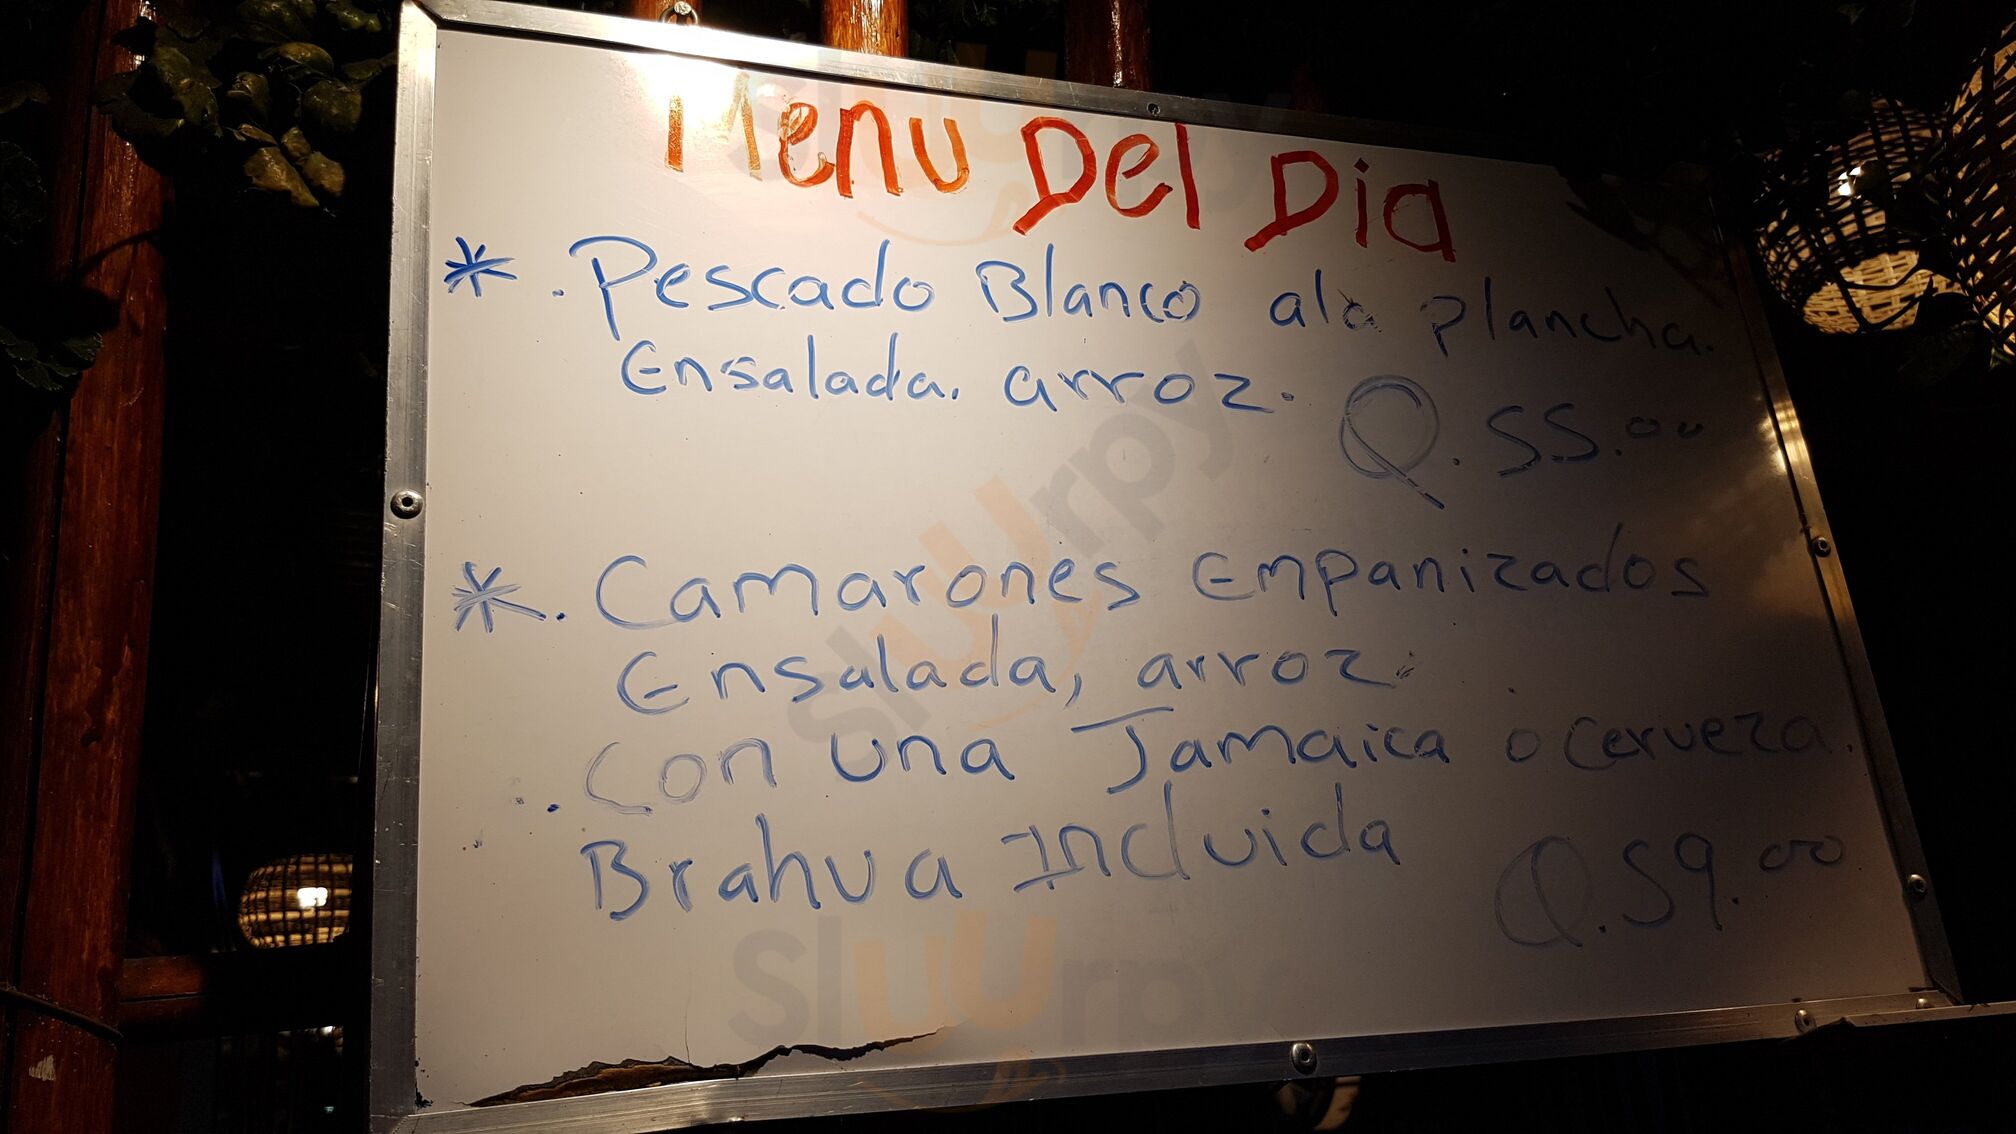 Menu Del Dia
* . Pescado Blanco ala plancha.
Ensalada. arroz.
Q. 55.00
* . Camarones Empanizados
Ensalada, arroz.
Con una Jamaica o cerveza.
Brahva Incluida
Q. 59.00
sluurpy
sluurpy
sluurpy